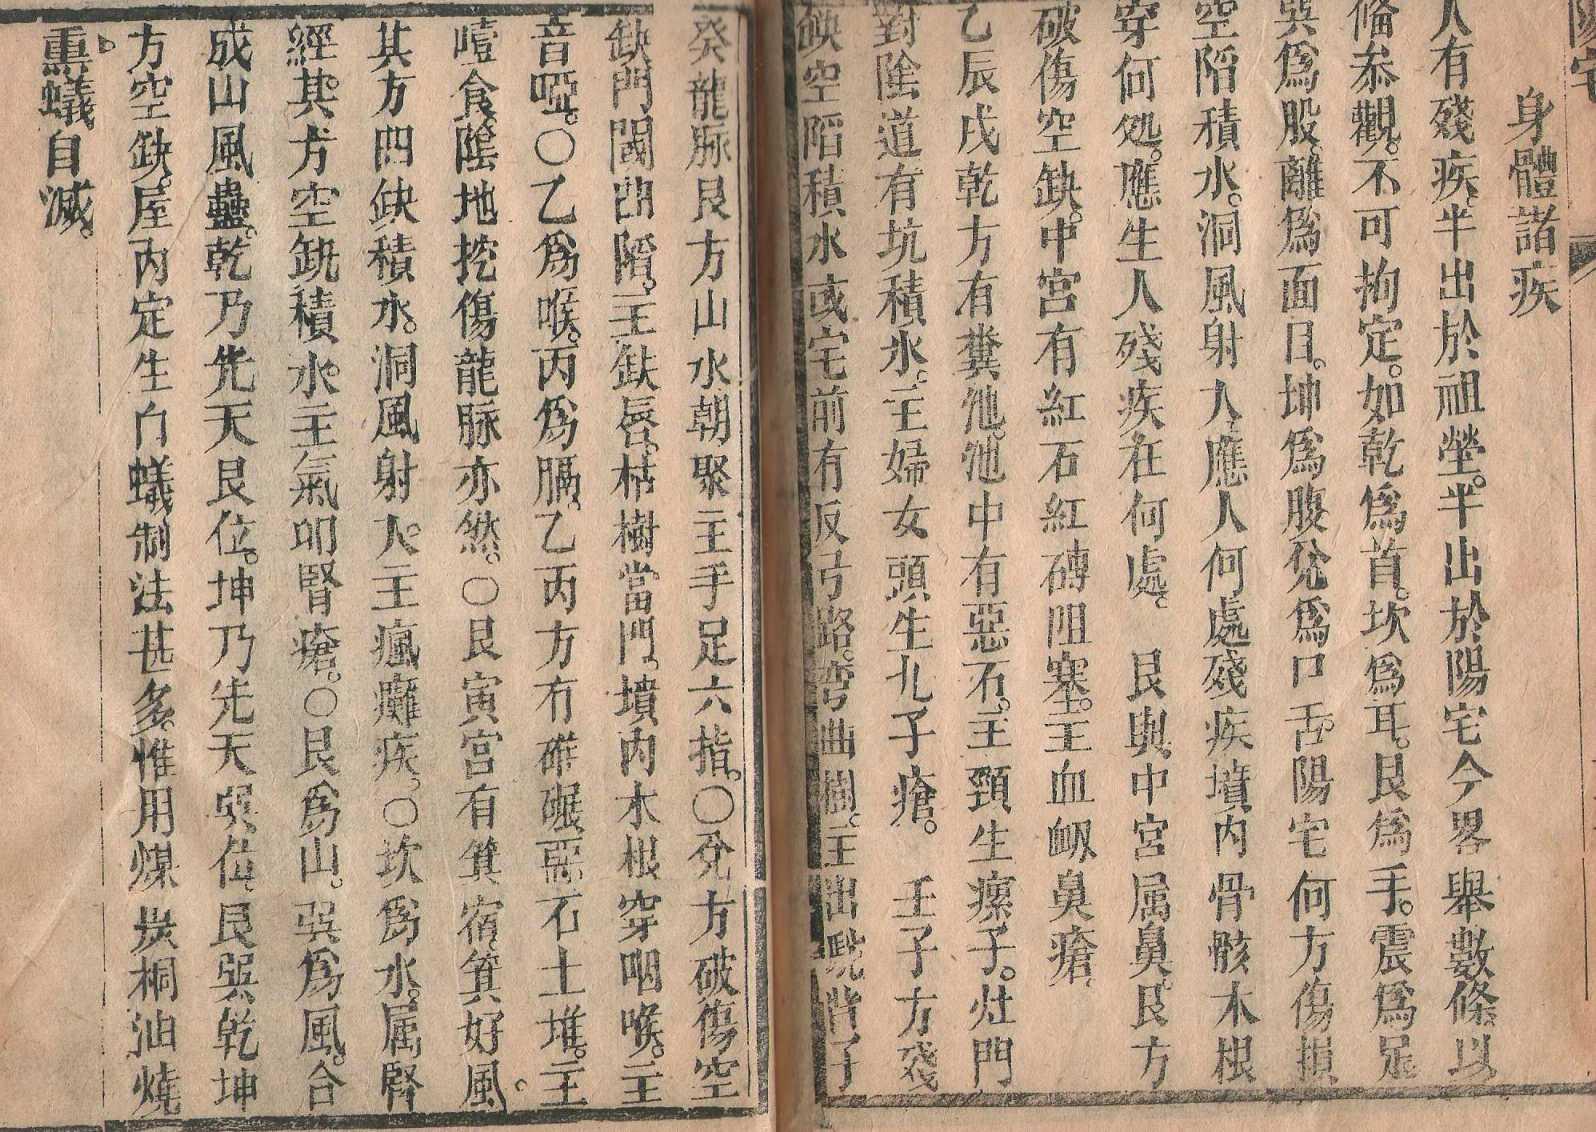 身體諸疾
人有殘疾。半出於祖塋。半出於陽宅今畧舉數條。以
俻叅觀。不可拘定。如乾爲首。坎爲耳。艮爲手。震爲足
巽爲股。離爲面目。坤爲腹兌爲口舌。陽宅何方傷損
空陷積水。洞風射人。應人何處殘疾墳内骨骸木根
穿何処。應生人殘疾在何處。艮與中宮属鼻。艮方
破傷空缺。中宮有紅石紅磚阻塞。主血衂鼻瘡。
乙辰戌乾方有糞池。池中有惡石。主頸生瘰子。灶門
對陰道有坑積水。主婦女頭生九子瘡。壬子方殘
缺空陷積水或宅前有反弓路。弯曲樹。主出駝背子
癸龍脉艮方山水朝聚主手足六指。〇兌方破傷空
缺門闊曲陷。主缺唇。枯樹當門。墳内木根穿咽喉。主
音啞。〇乙爲喉。丙爲膈。乙丙方有碓碾惡石土堆。主
噎食陰地挖傷龍脉亦然。〇艮寅宮有箕宿。箕好風。
其方凹缺積水。洞風射人。主瘋癱疾。〇坎爲水。属腎
經。其方空缺積水。主氣卵腎瘡。〇艮爲山。巽爲風。合
成山風蠱。乾乃先天艮位。坤乃先天巽位。艮巽乾坤
方空缺。屋内定生白蟻制法甚多。惟用煤炭桐油燒
熏蟻自滅。